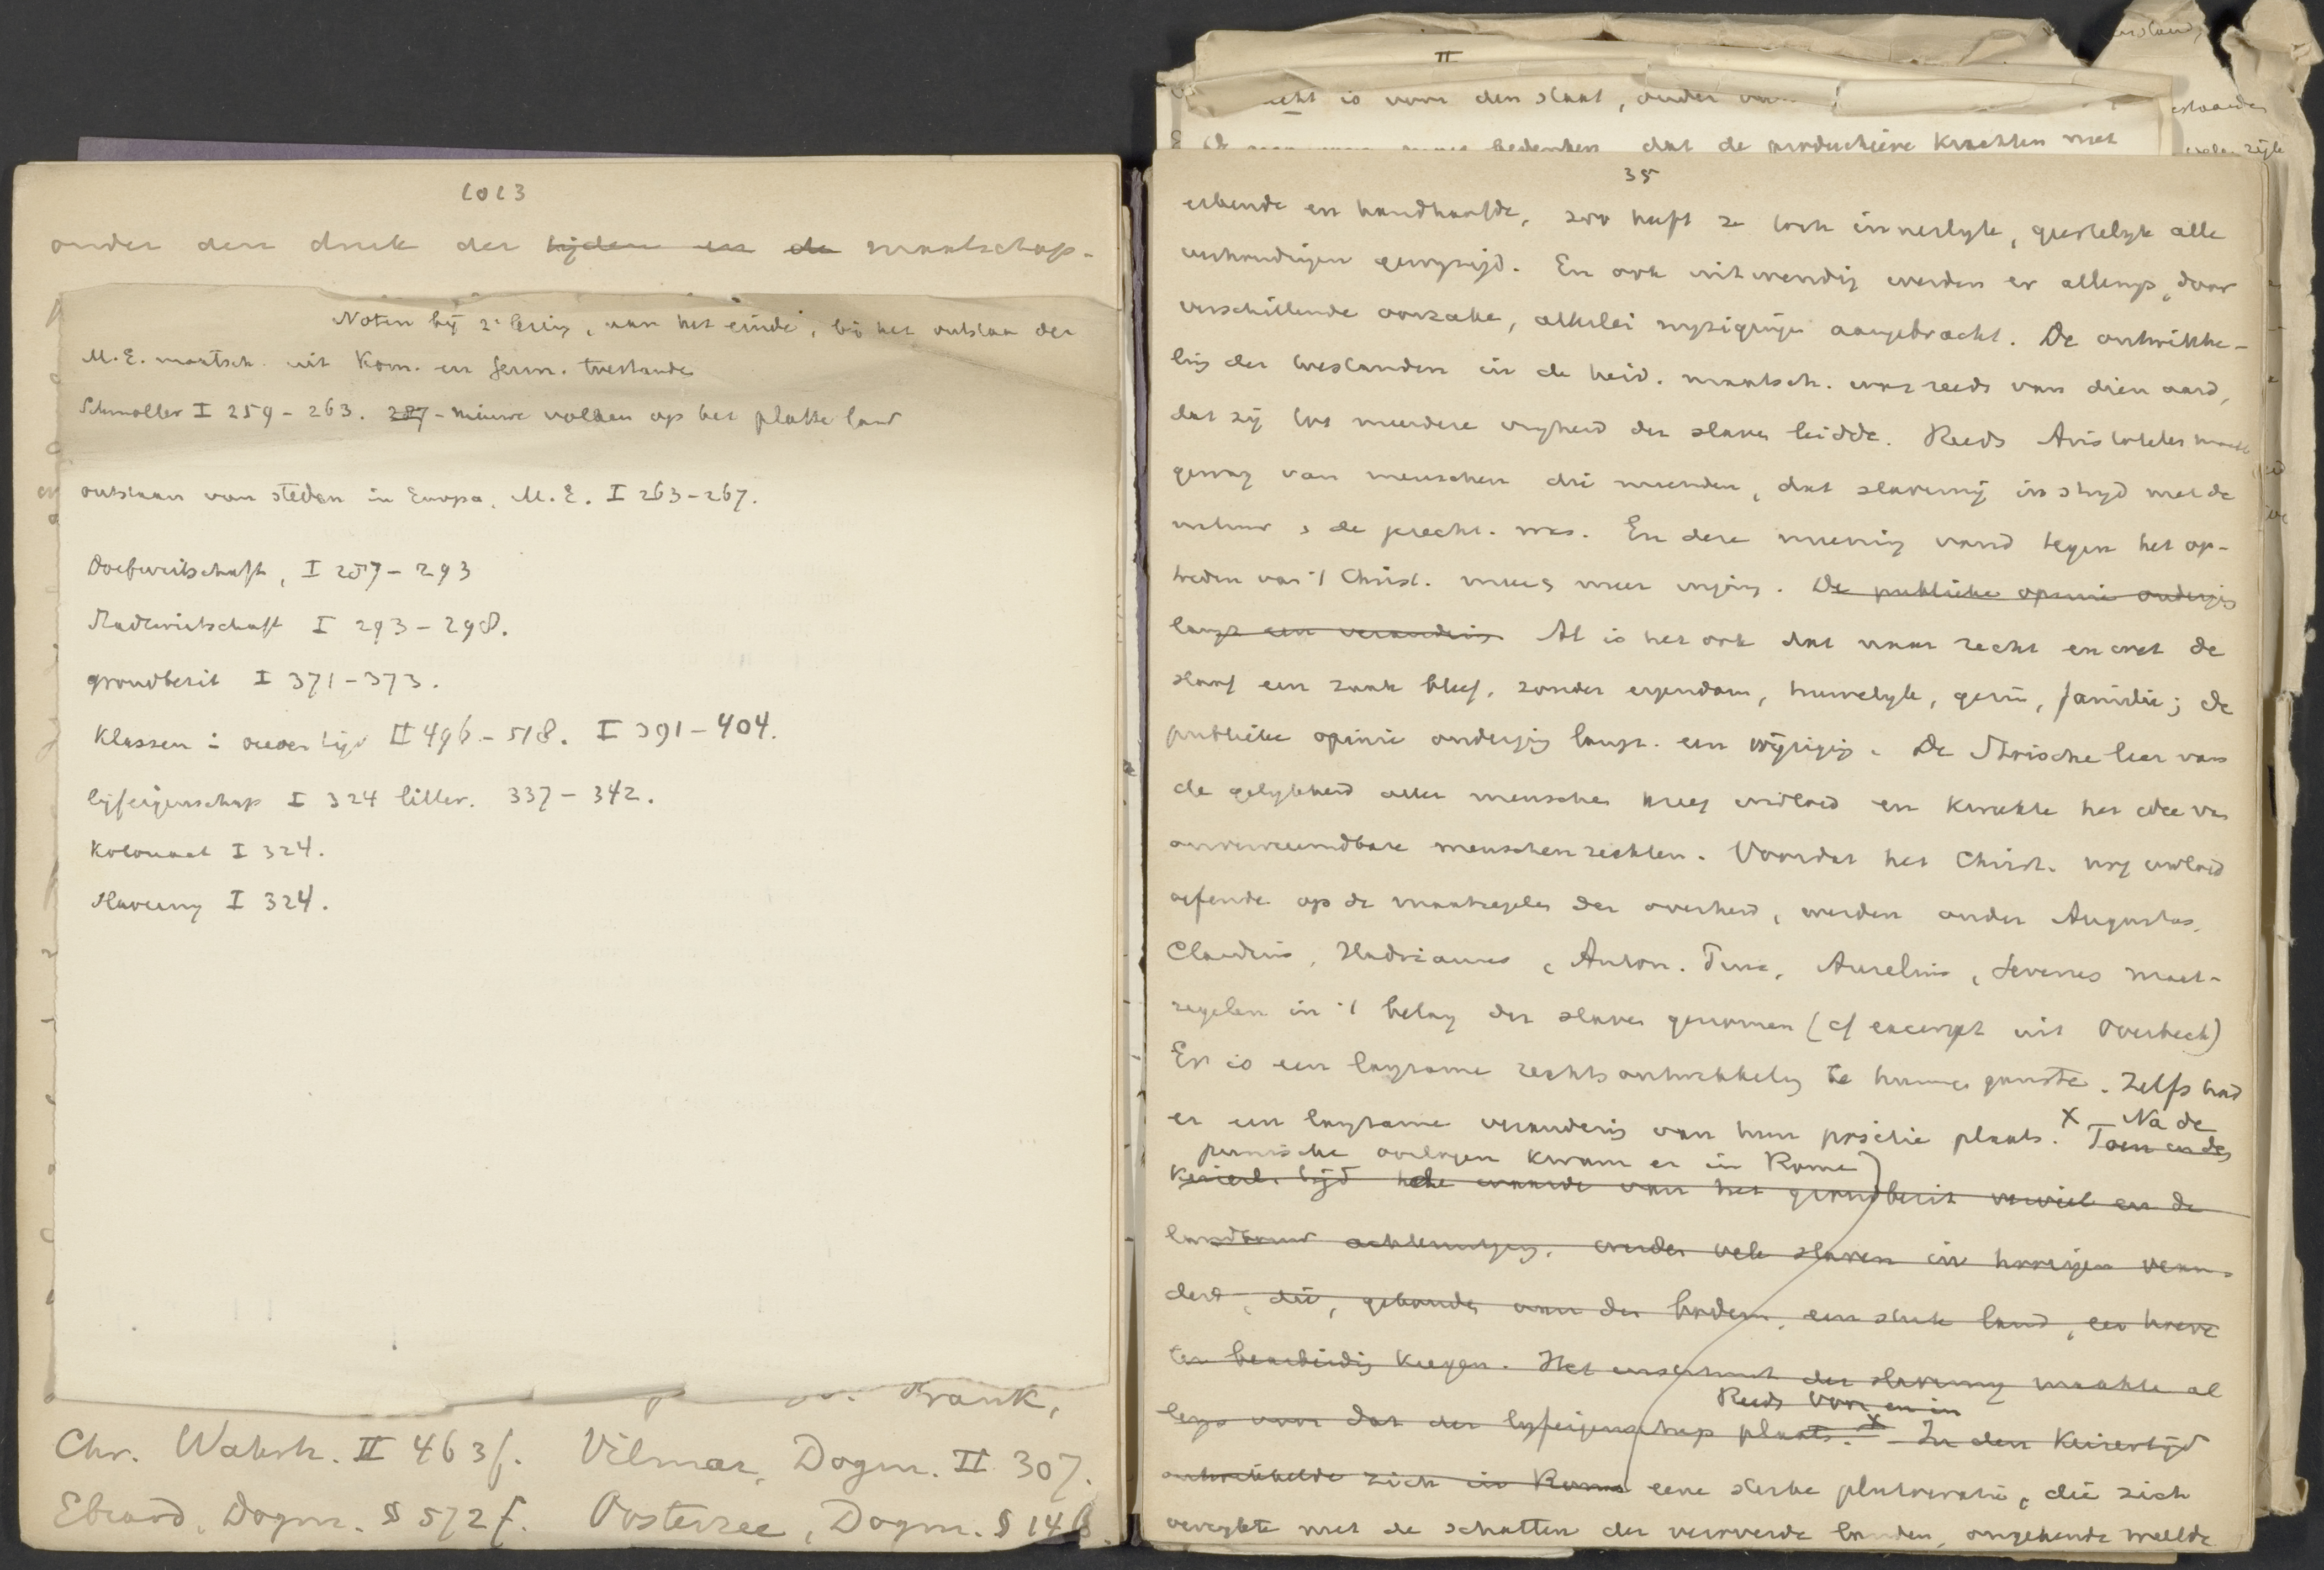 1013
onder den druk der tijden en de maatschap-
Noten bij 2e lezing, aan het einde, bij het ontstaan der
M.E. maatsch. uit Rom. en Germ. toestanden
Schmoller I 259-263. 287- nieuwe volken op het platte land
ontstaan van steden in Europa, M.E. I 263-267.
Dorfwirtschaft, I 287-293
Stadtwirtschaft I 293-298.
grondbezit I 371-373.
Klassen II 496-518. I 391-404.
lijfeigenschap I 324 litter. 337-342.
Kolonaat I 324.
Slaverny I 324.
Frank,
Chr. Wahrh. II 463f. Vilmar, Dogm. II 307.
Ebrard, Dogm. § 572f. Oosterzee, Dogm. § 146
II
is voor den staat, onder
bedenken, dat de productieve krachten met
35
erkende en handhaafde, zoo heeft ze toch innerlyk, geestelyk alle
verhoudingen gewyzigd. En ook uitwendig werden er allengs, door
verschillende oorzake, allerlei wyzigingen aangebracht. De ontwikke-
ling der toestanden in de heid. maatsch. was reeds van dien aard,
dat zij tot meerdere vryheid der slaven leidde. Reeds Aristoteles maakt
gewag van menschen die meenden, dat slaverny in stryd met de
natuur en de gerecht. was. En deze meening vond tegen het op-
treden van 't Christ. meer en meer ingang. De publieke opinie onderging
langz. een verandering. Al is het ook dat naar recht en wet de
slaaf een zaak bleef, zonder eigendom, huwelyk, gezin, familie; de
publieke opinie onderging langz. een wijziging. De Stoische leer van
de gelykheid aller menschen kreeg invloed en kweekte het idee van
onvervreemdbare menschenrechten. Voordat het Christ. nog invloed
oefende op de maatregelen der overheid, werden onder Augustus,
Claudius, Hadrianus, Anton. Pius, Aurelius, Severus maat-
regelen in 't belang der slaven genomen (cf excerpt uit Overbeck)
Er is een langzame rechtsontwikkeling te hunnen gunste. Zelfs had
er een langzame verandering van hun positie plaats. X Na de
Toen in den
punische oorlogen kwam er in Rome
Keizerl. tijd de waarde van het grondbezit verviel en de
landbouw achteruitging, werden vele slaven in hoorigen veran-
derd, die, gebonden aan den bodem, een stuk land, een hoeve
ter bearbeiding kregen. Het instituut der slaverny maakte al
Reeds voor en in
lengs voor dat der lyfeigenschap plaats. X In den Keizertijd
ontwikkelde zich in Rome eene sterke plutocratie, die zich
verrykte met de schatten der veroverde landen, ongekende weelde